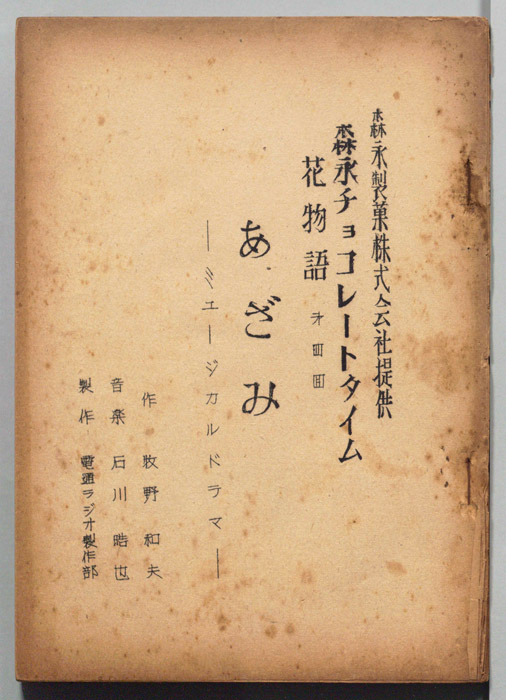 森永製菓株式会社提供
森永チョコレートタイム
花物語 才四回
あざみ
―ミュージカルドラマ―
作 牧野和夫
音楽 石川晧也
製作 電通ラジオ製作部